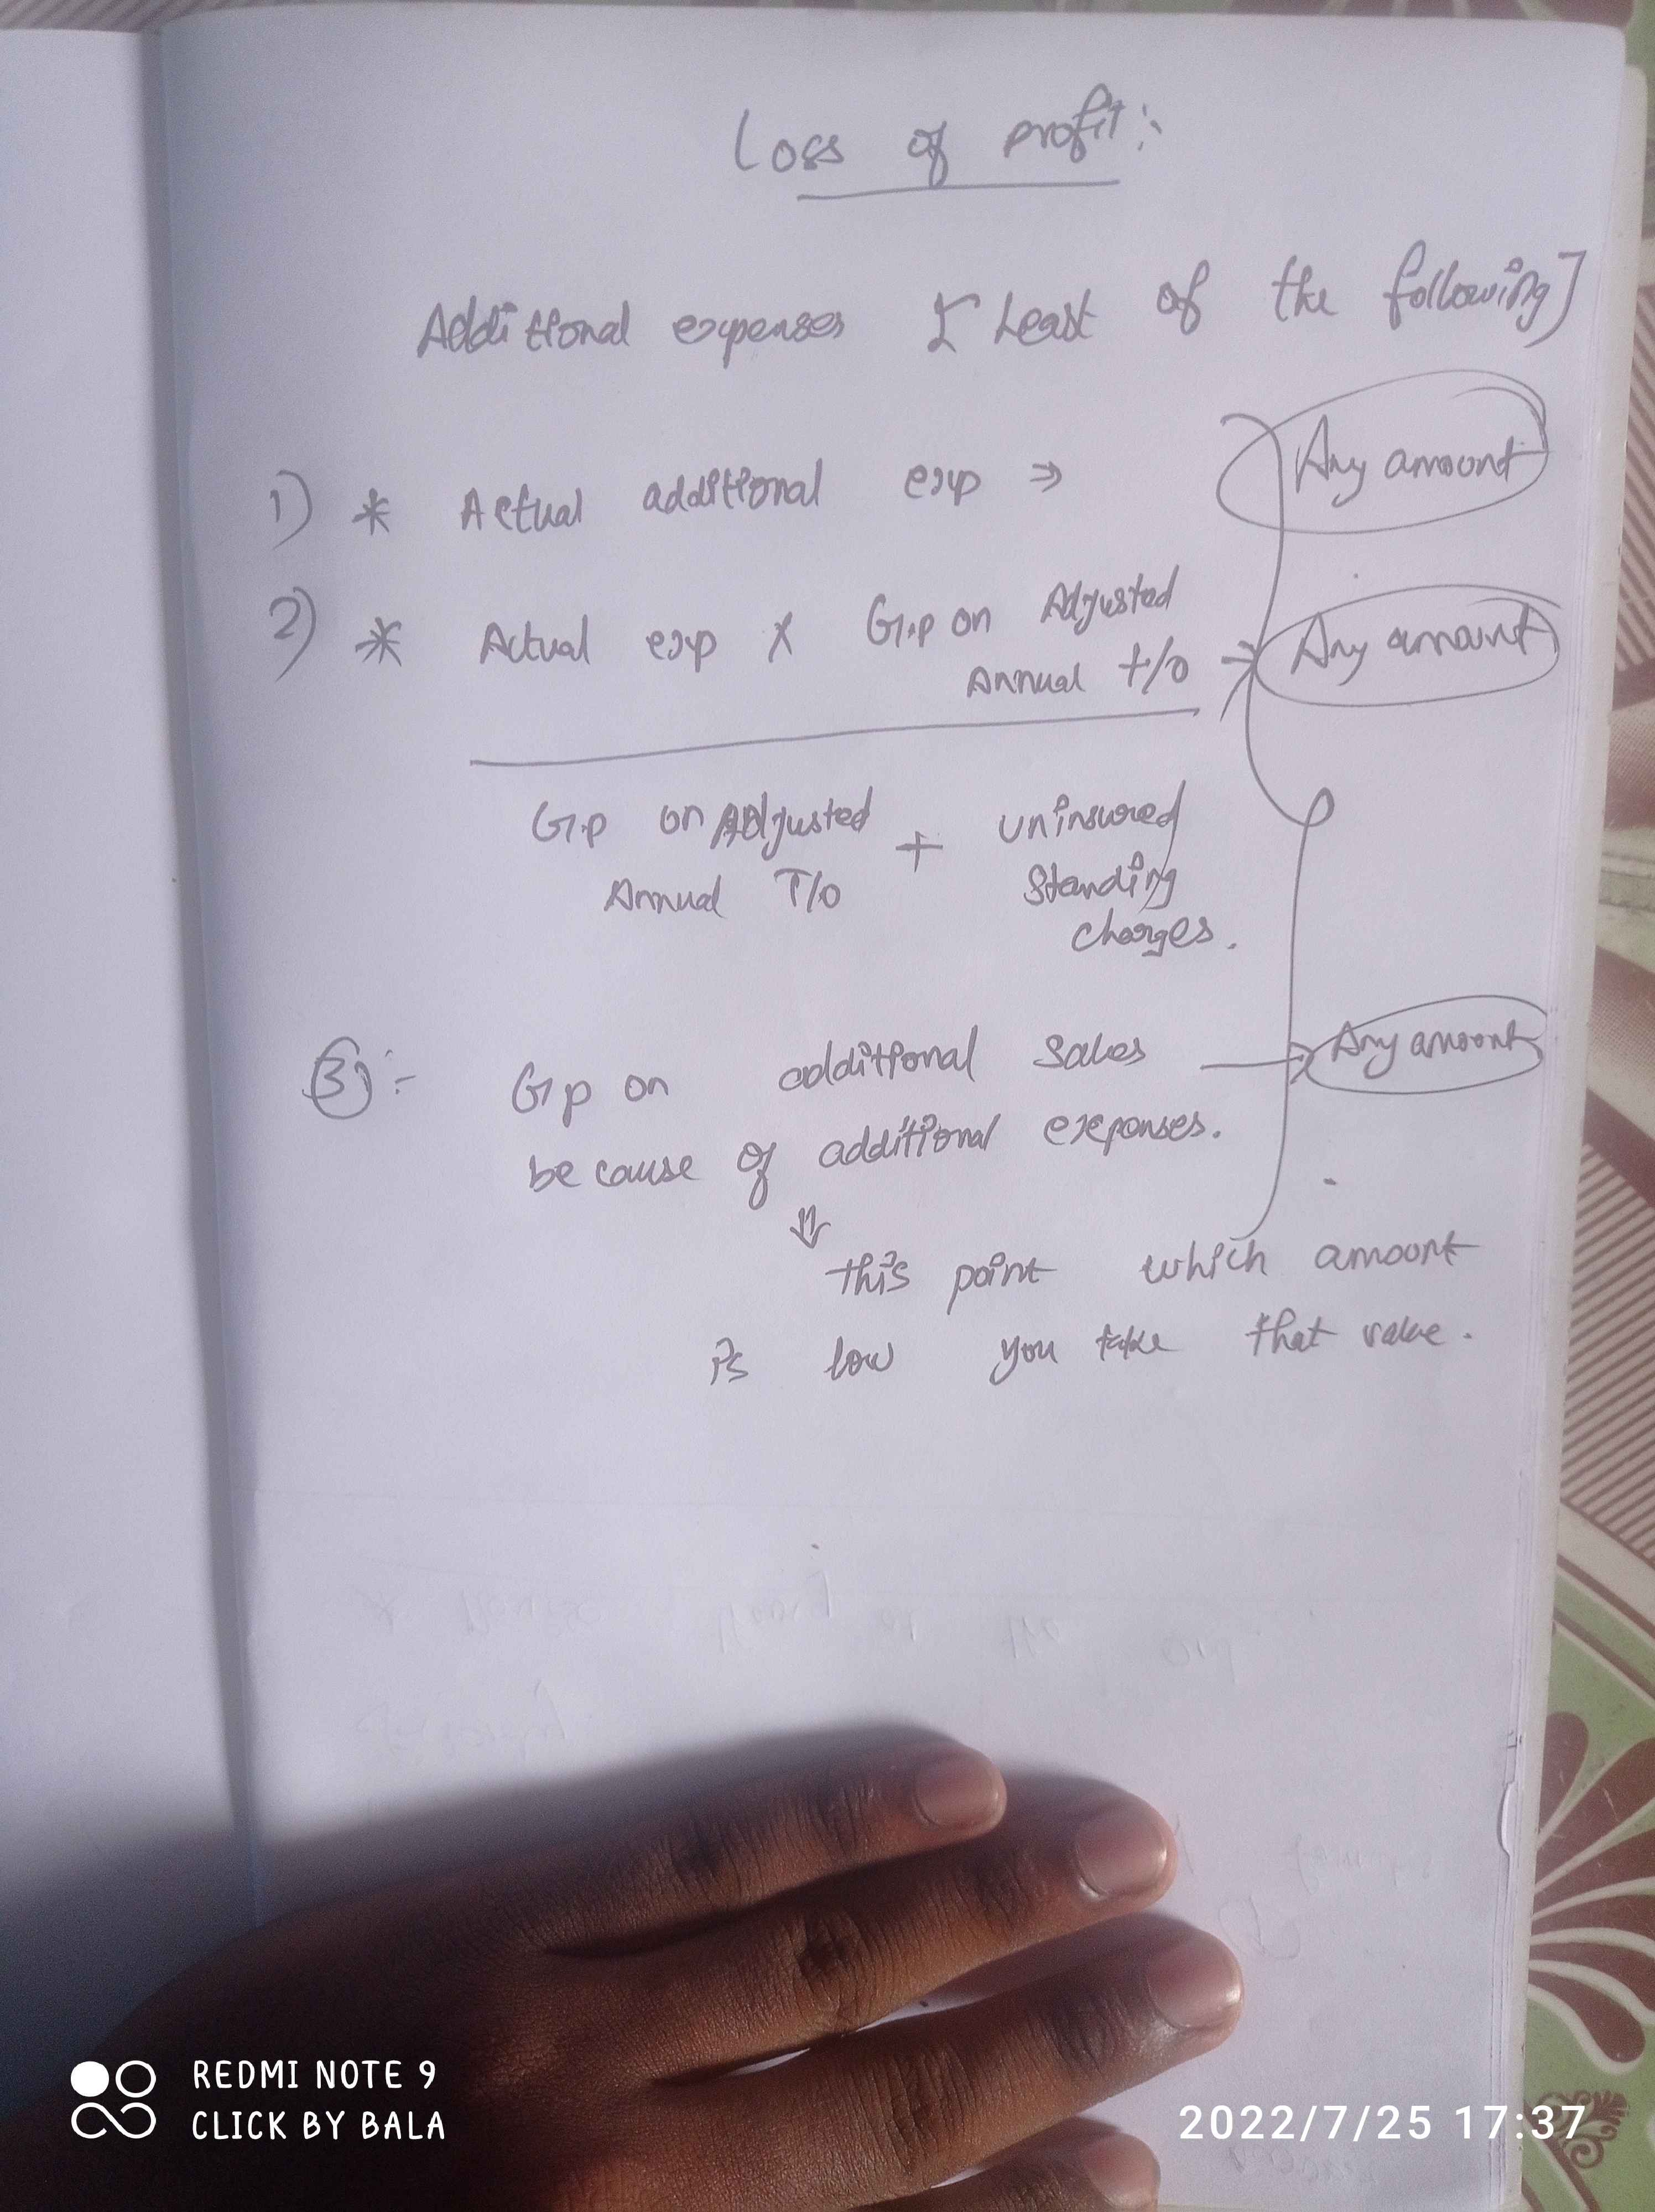 Loss of profit:-
Additional expenses [Least of the following]
1) * Actual additional exp ⇒ Any amount
2) * Actual exp X G.p on Adjusted
Annual t/o → Any amount
G.p on Adjusted + uninsured
Annual T/o Standing
charges.
3):- G.p on additional sales → Any amount
because of additional expenses.
⇓
this point which amount
is low you take that value.
REDMI NOTE 9
CLICK BY BALA
2022/7/25 17:37